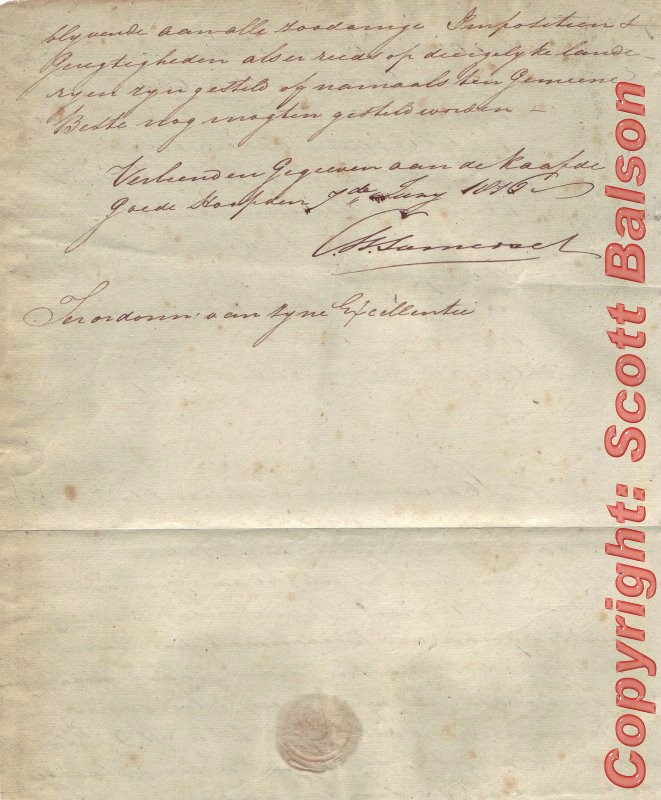 blyvende aan alle zoodanige Impositien &
Geregtigheden als er reeds op diergelyke lande-
ryen zyn gesteld of namaals ten Gemeene
Beste nog mogten gesteld worden –
Verleend en Gegeeven aan de Kaap de
Goede Hoop den 7de Juny
C. H. Somerset
Ter ordonn: van Zyne Excellentie
Copyright: Scott Balson